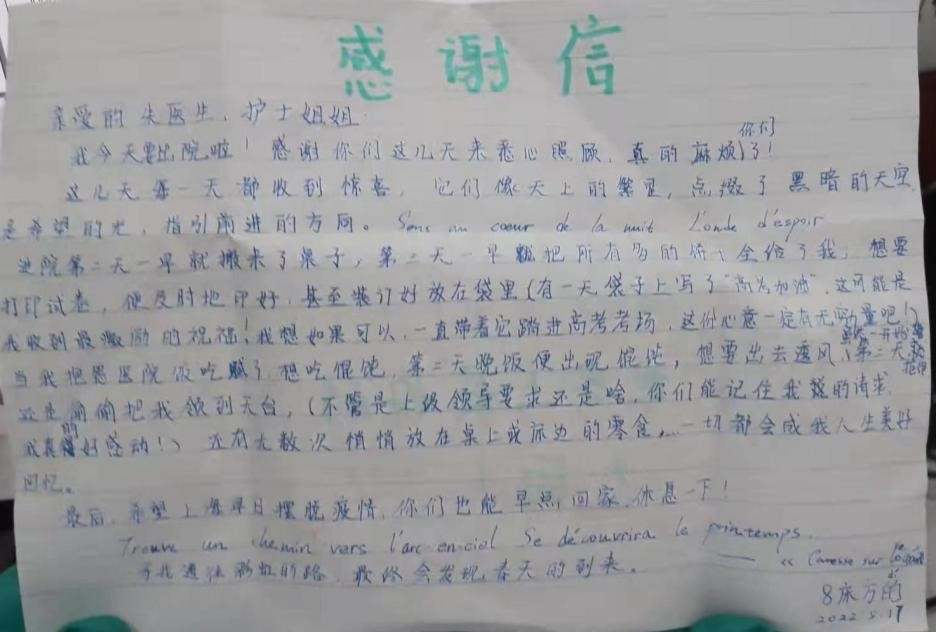 感谢信
亲爱的朱医生、护士姐姐:
我今天要出院啦!感谢你们这几天来悉心照顾,真的麻烦你们了!
这几天每一天都收到惊喜,它们像天上的繁星,点缀了黑暗的天空
是希望的光,指引前进的方向。Sens au coeur de la nuit L'onde d'espoir
进院第二天一早就搬来了桌子,第二天一早就把所有多的 全给了我,想要
打印试卷,便及时地印好,甚至装订好放在袋里(有一天袋子上写了“高考加油”,这可能是
我收到最激励的祝福!我想如果可以,一直带着它踏进高考考场,这份心意一定有无穷力量吧!)
当我把医院饭吃腻了想吃馄饨,第二天晚饭便出现馄饨,想要出去透风,第二天
还是偷偷把我领到天台,(不管是上级领导要求还是啥,你们能记住我 的请求
我真的好感动!)还有无数次悄悄放在桌上或床边的零食,…一切都会成我人生美好
回忆。
最后,希望上海早日摆脱疫情,你们也能早点回家,休息一下!
Trouve un chemin vers l'arc-en-ciel Se découvrira le printemps.
寻找通往彩虹的路,最终会发现春天的到来。
—— 《Caresse sur l'océan》
8床方
2022.5.17